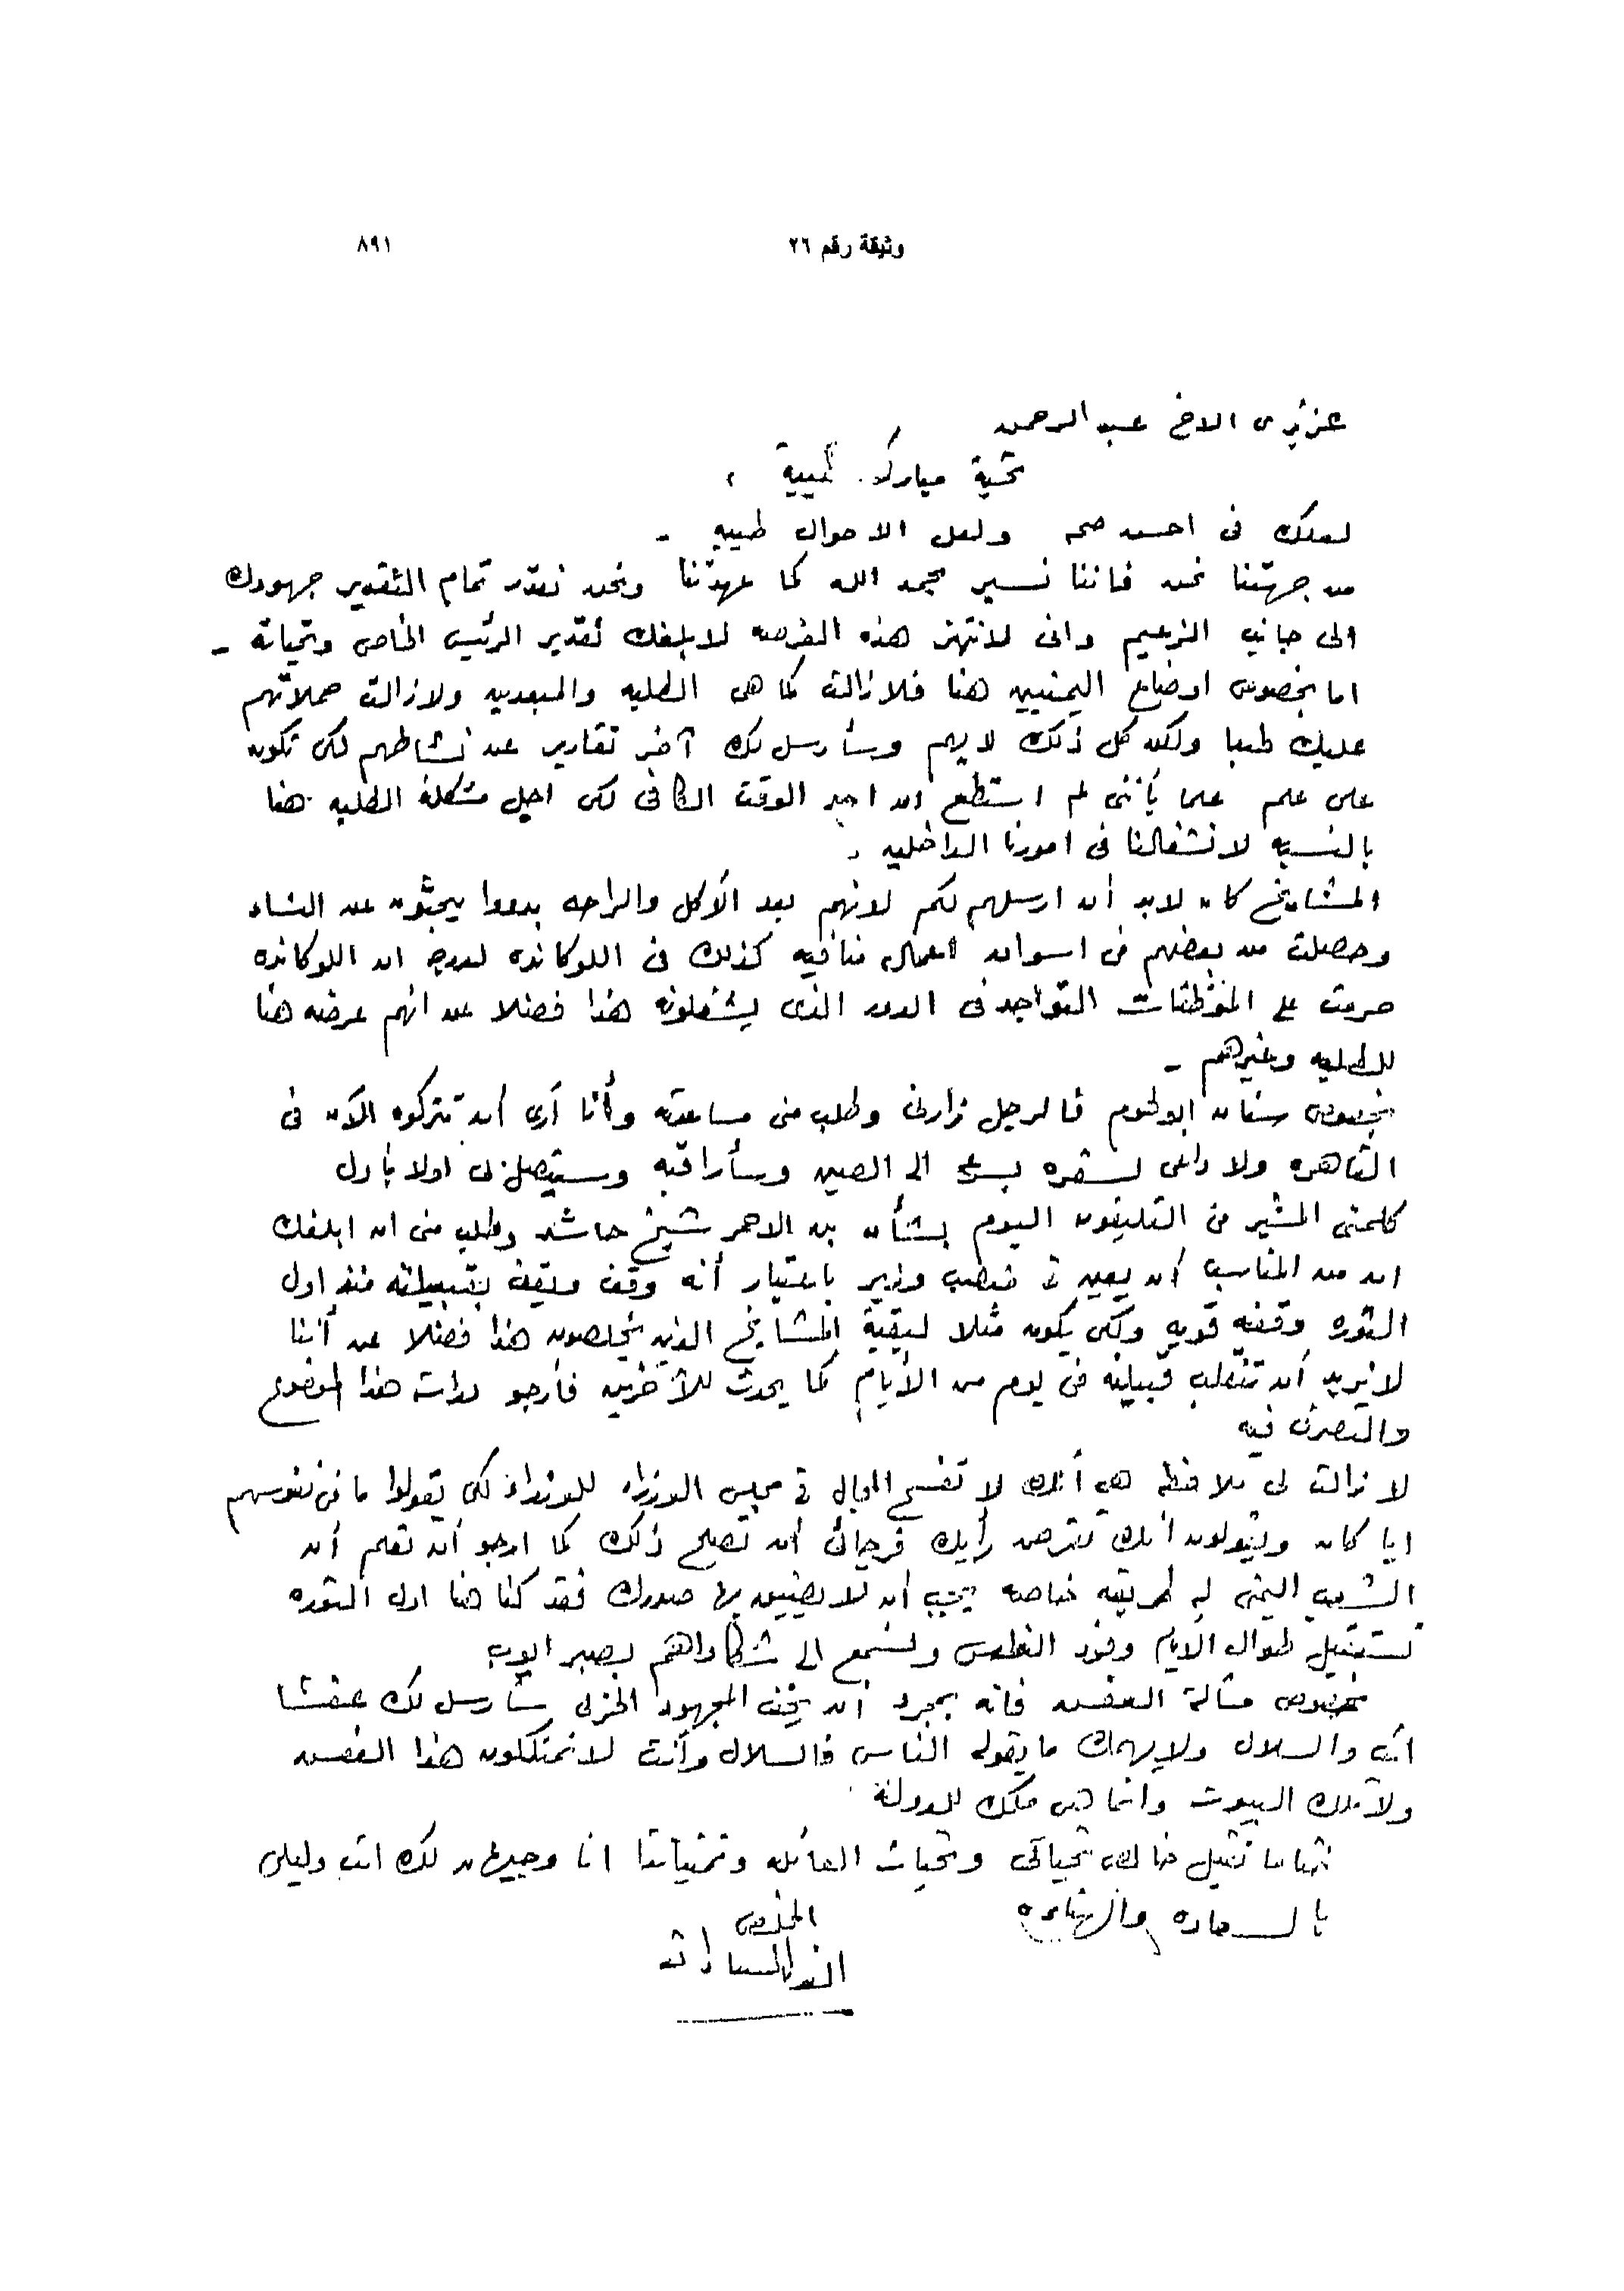 وثيقة رقم ٢٦
٨٩١
عزيزى الاخ عبد الرحمن
تحية مباركه طيبة ،
لعلك فى احسن صحه ولعل الاحوال طيبه -
من جهتنا نحن فاننا نسير بحمد الله كما عهدتنا ونحن نقدر تمام التقدير جهودك
الى جانب الزعيم وانى لانتهز هذه الفرصه لابلغك تقدير الرئيس الخاص وتحياته -
اما بخصوص اوضاع اليمنيين هنا فلا زالت كما هى الطلبه والمبعدين ولا زالت حملاتهم
عليك طبعا ولكن كل ذلك لا يهم وسأرسل لك آخر تقارير عن نشاطهم لكى تكون
على علم علما بأننى لم استطع ان اجد الوقت الكافى لكى احل مشكلة الطلبه هنا
بالنسبه لانشغالنا فى امورنا الداخليه .
المشايخ كان لابد أن ارسلهم لكم لانهم بعد الأكل والراحه بدءوا يبحثون عن النساء
وحصلت من بعضهم فى اسوان اعمال منافيه كذلك فى اللوكانده لدرجة ان اللوكانده
حرمت على الموظفات التواجد فى الدور الذى يشغلونه هذا فضلا عن انهم عرضه هنا
للطلبه وغيرهم -
بخصوص سنان ابولحوم فالرجل زارنى وطلب منى مساعدته وأنا أرى أن تتركوه الآن فى
القاهره ولا داعى لسفره بسرعه الى الصين وسأراقبه وسيتصل بى اولا بأول
كلمنى المشير فى التليفون اليوم بشأن بن الاحمر شيخ حاشد وطلب منى ان ابلغك
ان من المناسب أن يعين فى منصب وزير باعتبار أنه وقف ويقف بقبيلته منذ اول
الثوره وقفه قويه ولكى يكون مثلا لبقية المشايخ الذين يخلصون هذا فضلا عن أننا
لا نريد أن تنقلب قبيلته فى يوم من الأيام كما يحدث للآخرين فأرجو دراسة هذا الموضوع
والتصرف فيه
لا زالت لى ملاحظه هى أنك لا تفسح المجال فى مجلس الوزراء للوزراء لكى يقولوا ما فى نفوسهم
ايا كان ويقولون انك تفرض رأيك فرجائى أن تصلح ذلك كما ارجو أن تعلم أن
الشعب اليمنى له طريقه خاصه يجب أن لا يضيق بها صدرك فقد كنا هنا اول الثوره
نستقبل طوال الايام وفود الناس ونستمع الى شكاواهم بصبر ايوب
بخصوص مسألة العفش فانه بمجرد أن يخف المجهود الحربى سأرسل لك عفشا
انت والسلال ولا يهمك ما يقوله الناس فالسلال وأنت لا تمتلكون هذا العفش
ولا تلك البيوت وانما هى ملك للدولة
ختاما تقبل خالص تحياتى وتحيات العائله وتمنياتنا انا وجيهان لك انت وليلى
بالسعاده والهناءه
المخلص
انور السادات